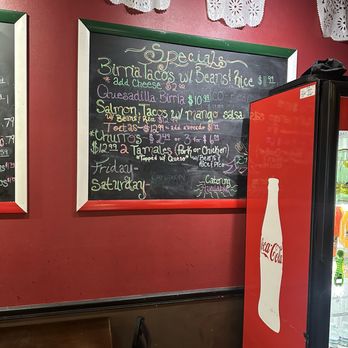 Specials
Birria Tacos w/ Beans & Rice $11.99
*add Cheese $2.00
Quesadilla Birria $10.99
Salmon Tacos w/ mango salsa
w/ Beans & Rice
Tortas - $12.99 - add avocado
Churros - $2.49 or 3 for $6
$12.99 2 Tamales (Pork or Chicken)
"Topped w/ Queso" w/ Beans & Rice
Friday-
Saturday-
Catering Available
Coca-Cola